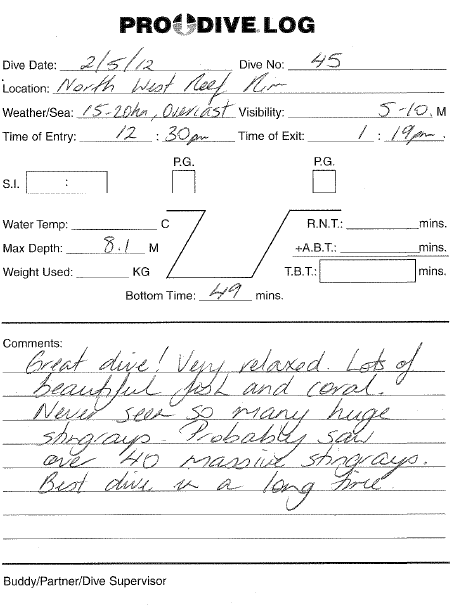 PRO DIVE LOG
Dive Date: 2/5/12 Dive No: 45
Location: North West Reef Rim
Weather/Sea: 15-20kn, Overcast Visibility: 5-10 M
Time of Entry: 12 : 30pm Time of Exit: 1 : 19pm
P.G. P.G.
S.I. :
Water Temp: C R.N.T.: mins.
Max Depth: 8.1 M +A.B.T.: mins.
Weight Used: KG T.B.T.: mins.
Bottom Time: 49 mins.
Comments:
Great dive! Very relaxed. Lots of
beautiful fish and coral.
Never seen so many huge
stingrays. Probably saw
over 40 massive stingrays.
Best dive in a long time
Buddy/Partner/Dive Supervisor